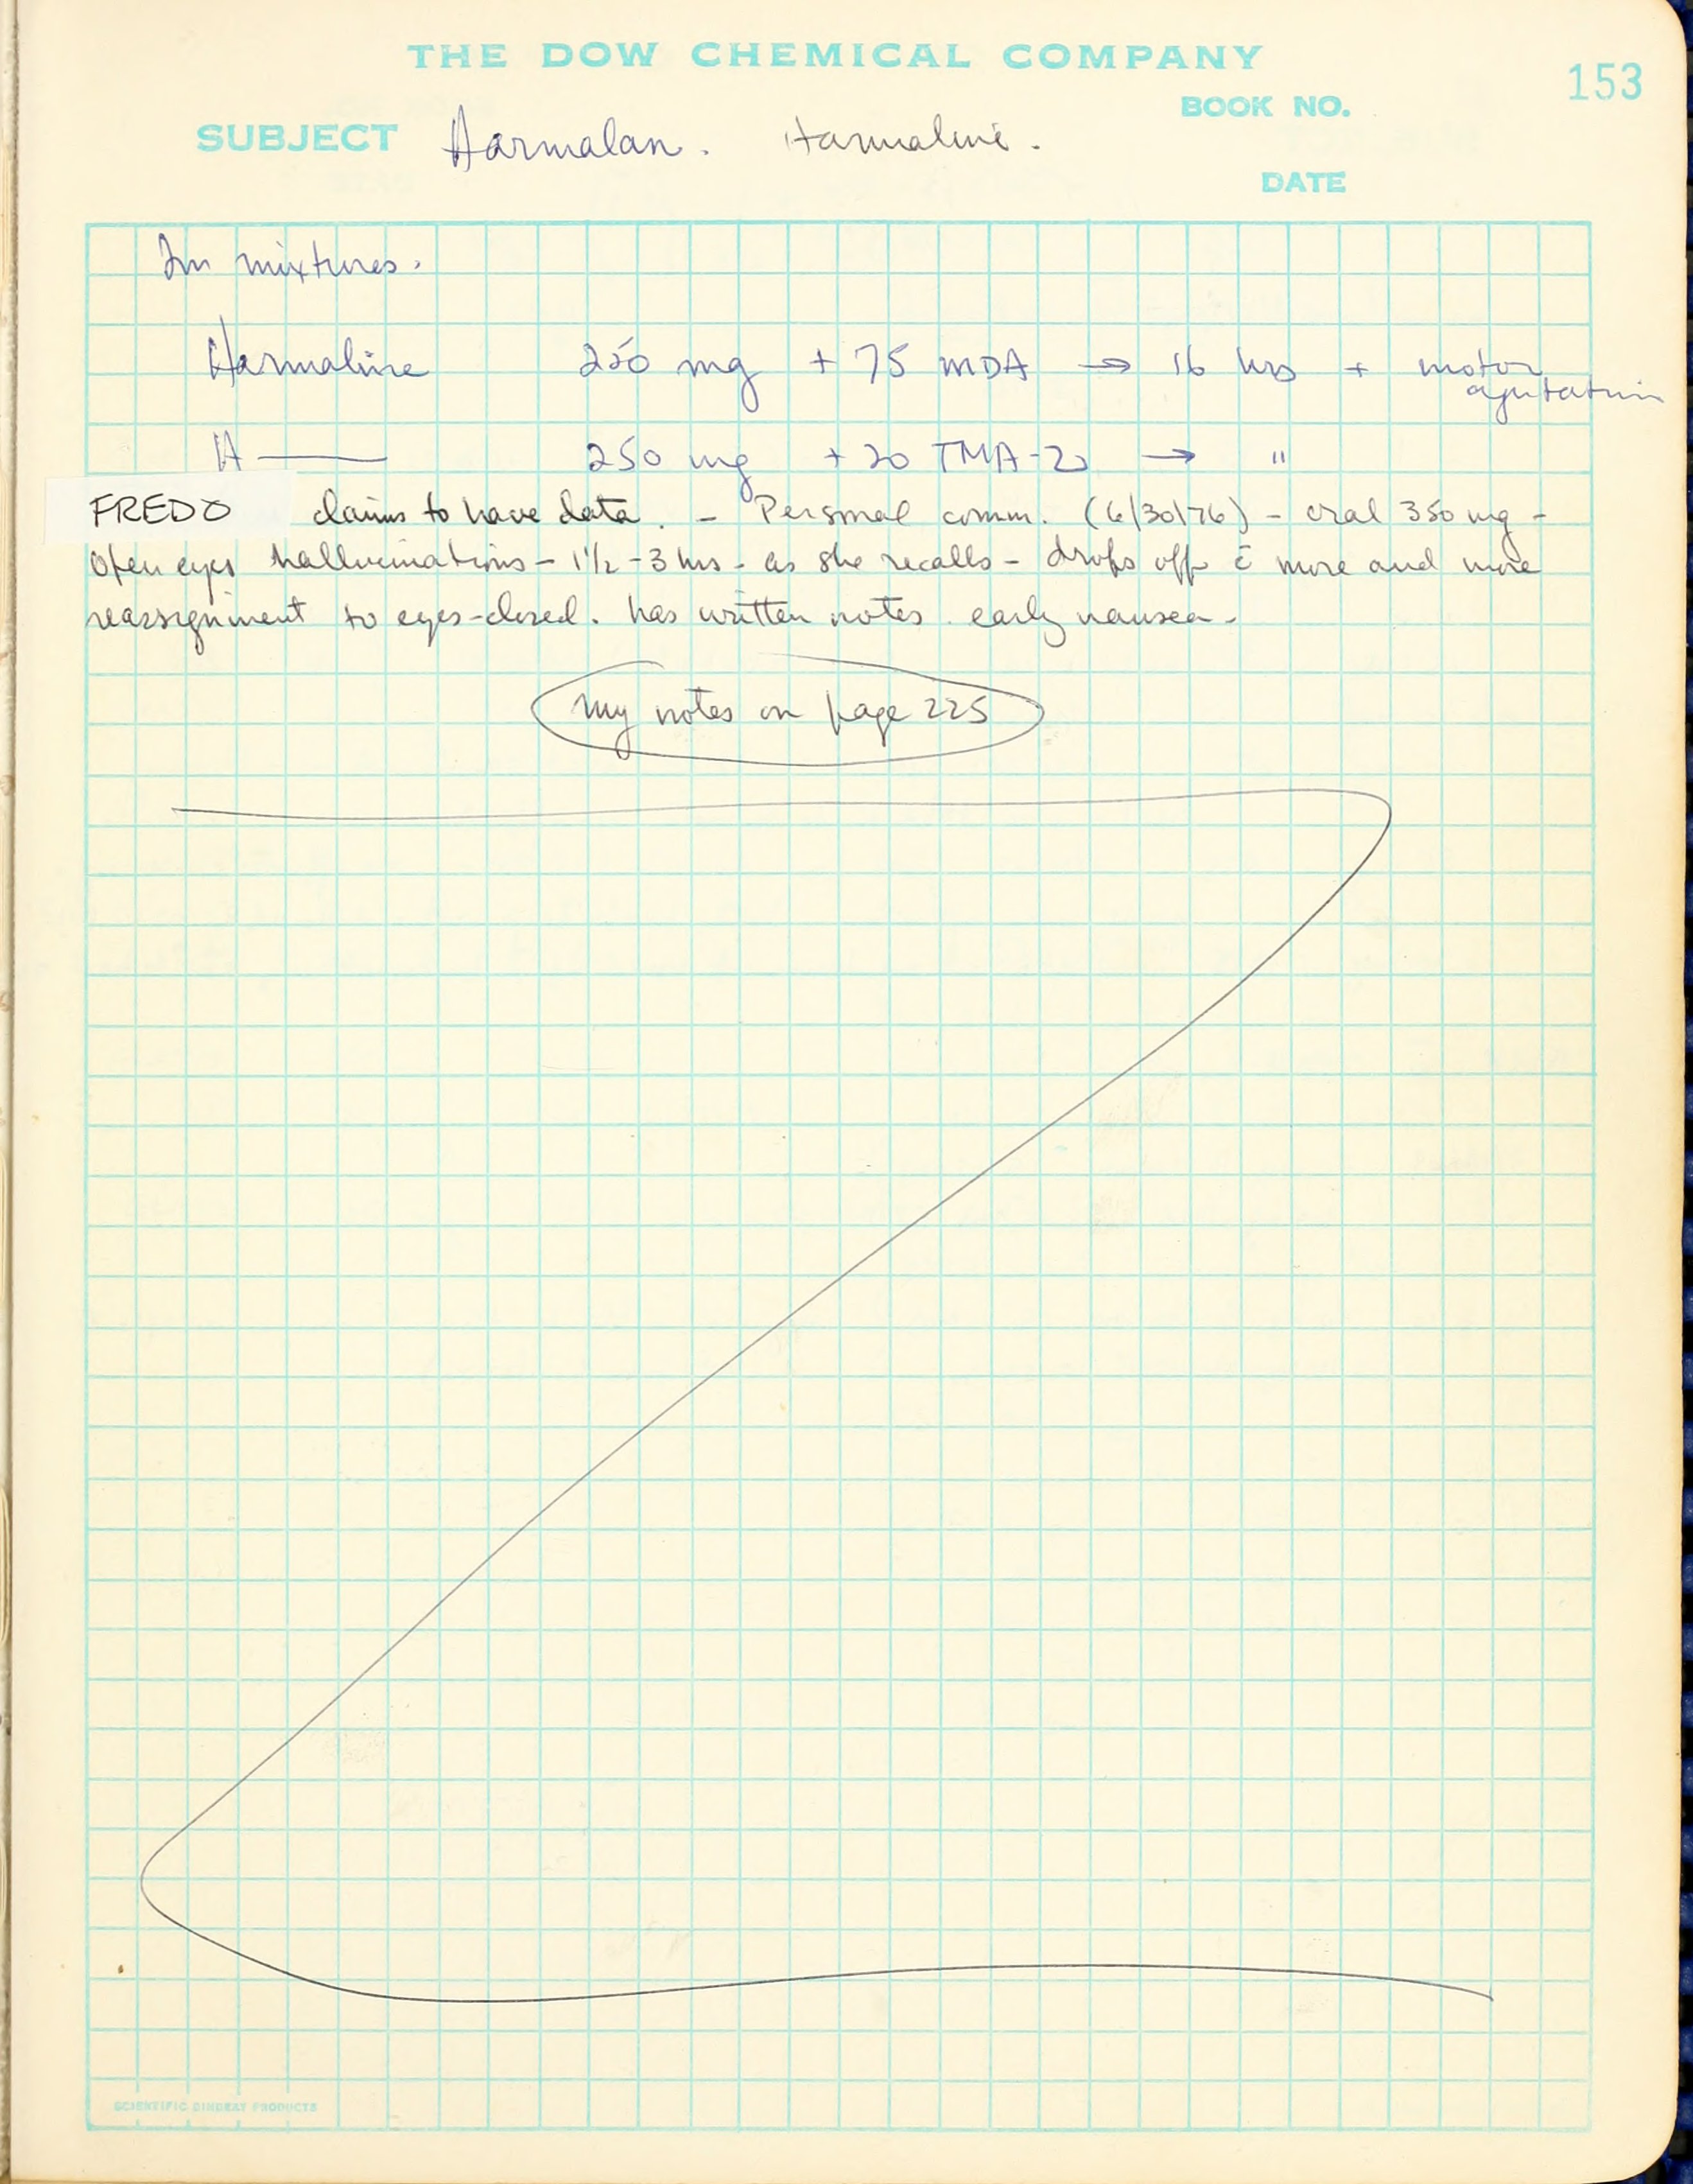 THE DOW CHEMICAL COMPANY
153
BOOK NO.
SUBJECT Harmalan. Harmaline.
DATE
In mixtures.
Harmaline 250 mg + 75 MDA → 16 hrs + motor
agitation
H—— 250 mg + 20 TMA-2 → "
FREDO claims to have data. - Personal comm. (6/30/76) - oral 350 mg -
Open eyes hallucinations - 1½ - 3 hrs - as she recalls - drops off c̄ more and more
reassignment to eyes-closed. has written notes. early nausea -
My notes on page 225
SCIENTIFIC BINDERY PRODUCTS